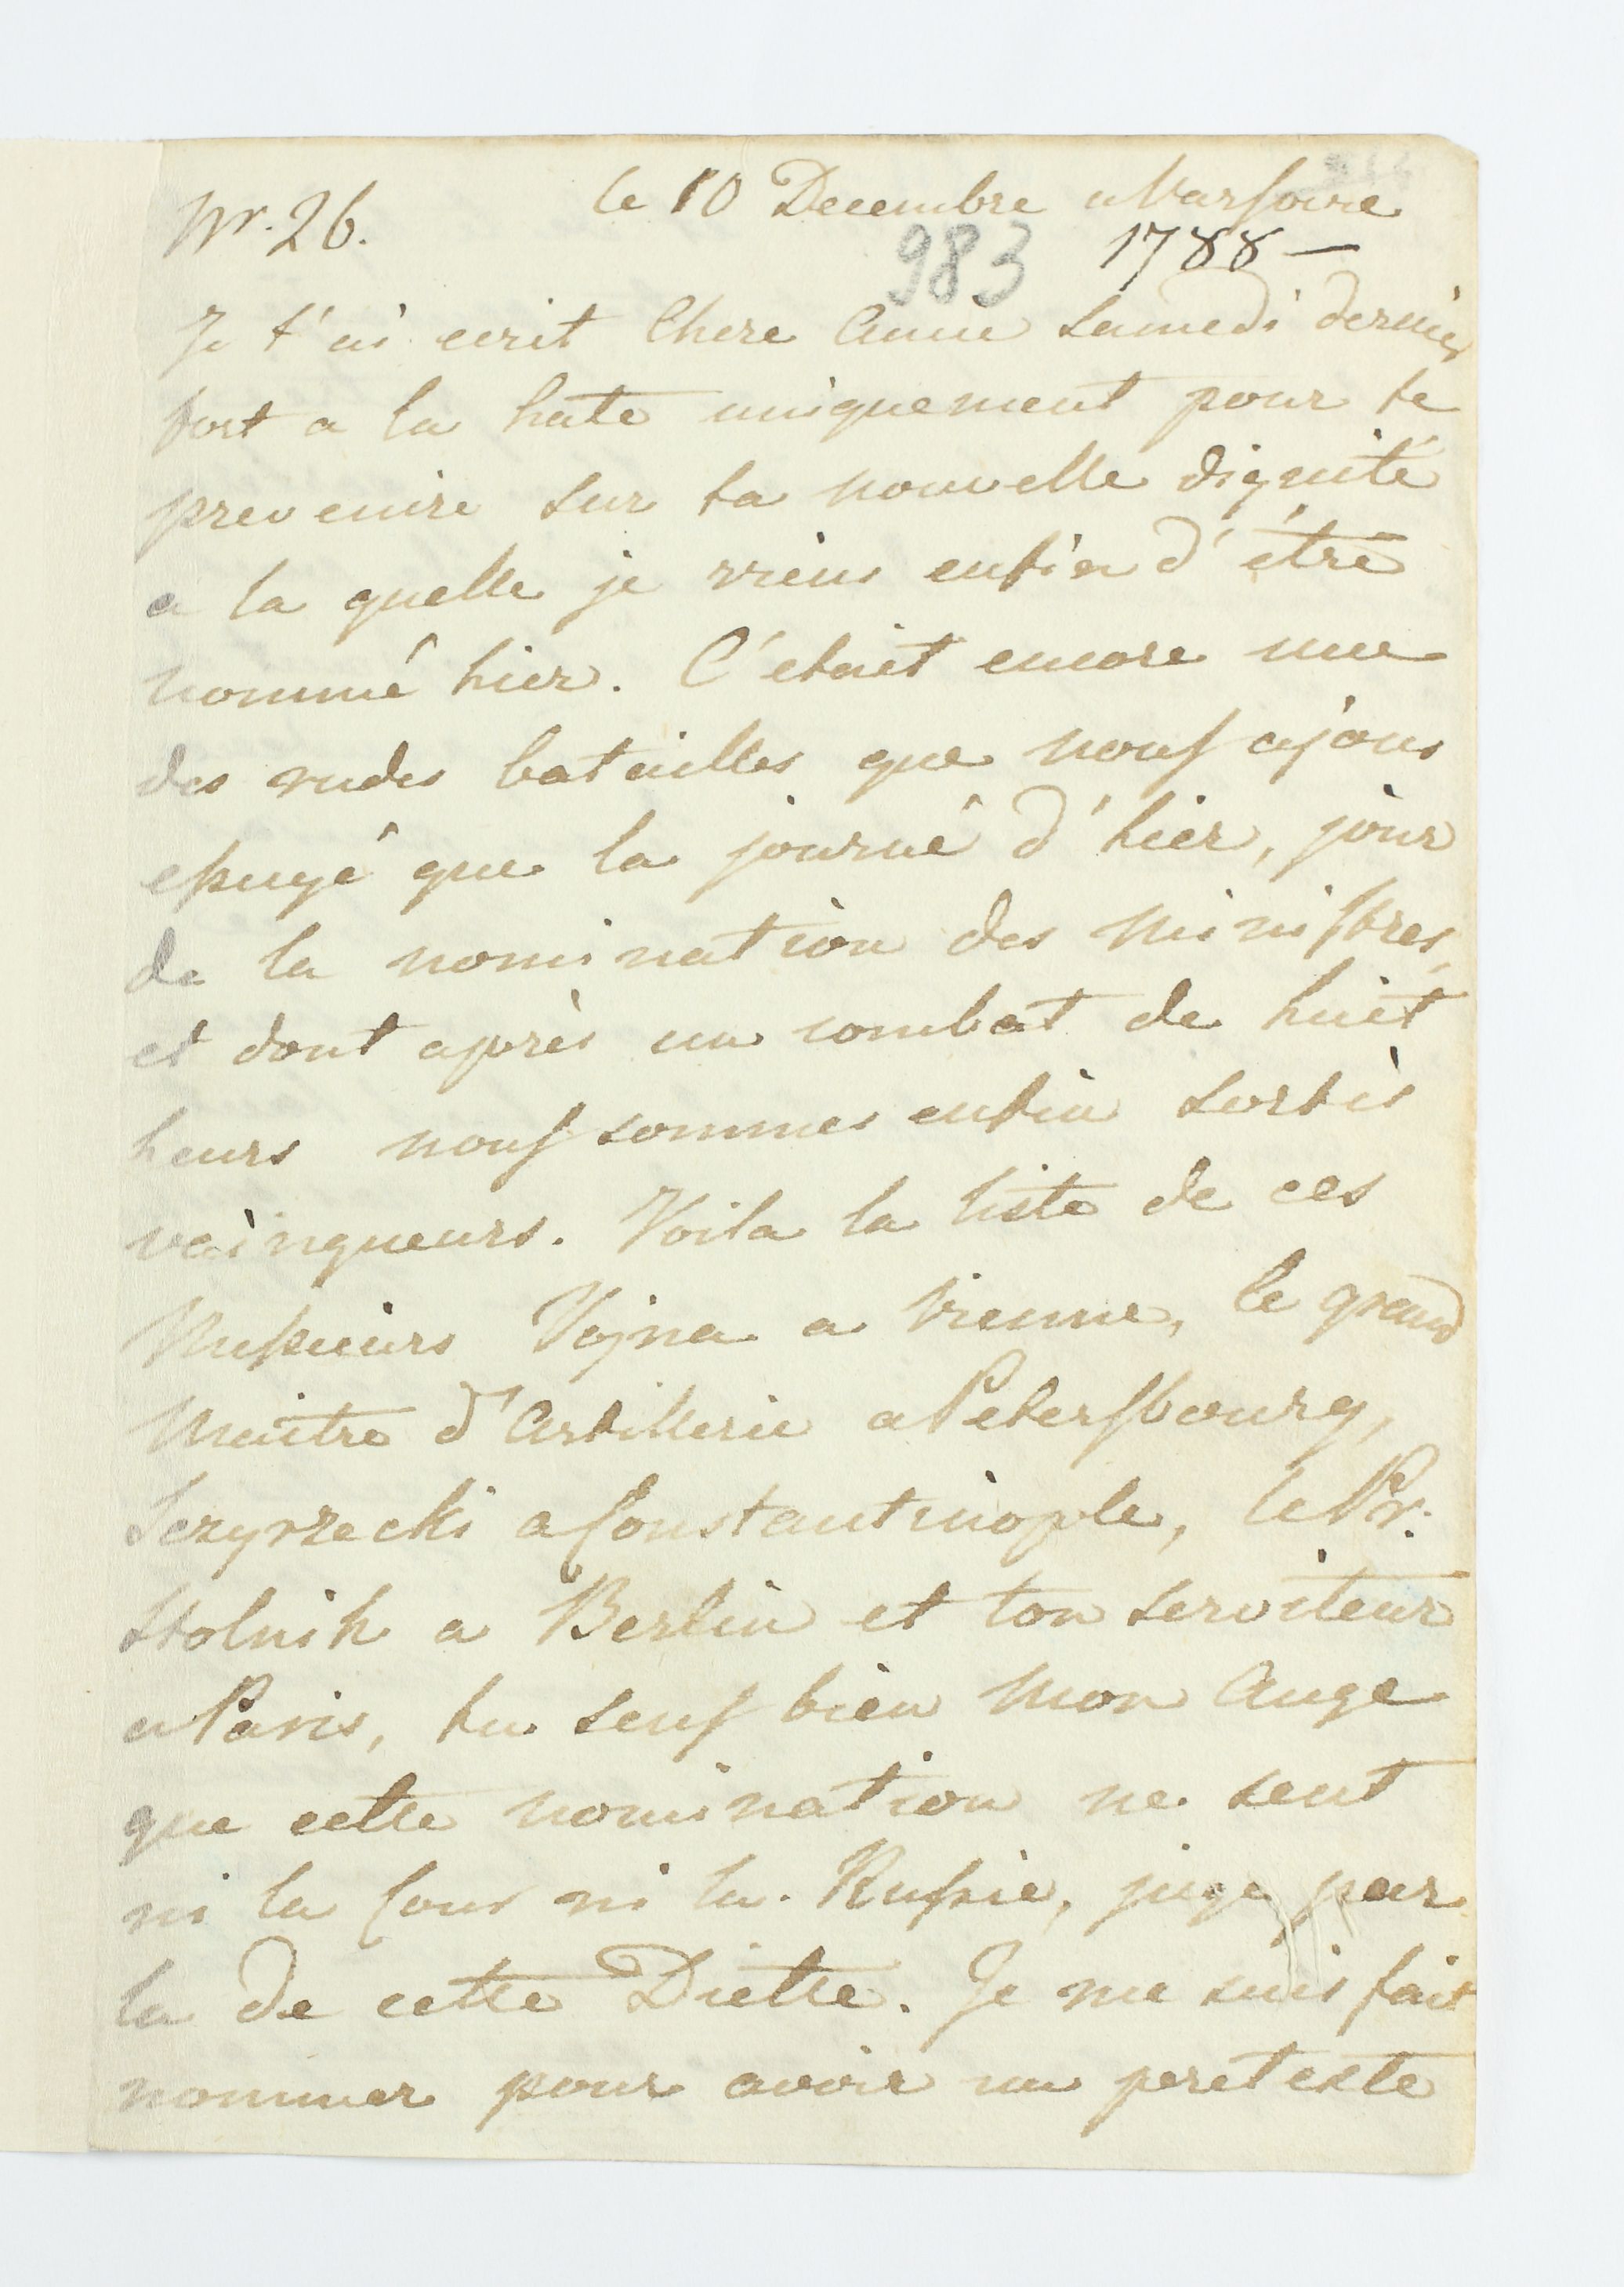 Nr. 26. le 10 Decembre a Varsovie
983 1788 —
Je t'ai ecrit Chere Amie Samedi dernier
fort a la hate uniquement pour te
prevenire sur ta nouvelle dignité
a la quelle je viens enfin d'être
nommé hier. C'etait encore une
des rudes batailles que nous ajons
essuyé que la journé d'hier, jour
de la nomination des Ministres,
et dont après un combat de huit
heurs nous sommes enfin sortis
vainqueurs. Voila la liste de ces
Messieurs Vojna a Vienne, le grand
Maitre d'Artillerie a Petersbourg,
Sczyrzecki a Constantinople, le Pr.
Stolnik a Berlin et ton serviteur
a Paris, tu sens bien mon Ange
que cette nomination ne sent
ni la Cour ni la Russie, juge par
la de cette Diette. Je me suis fait
nommer pour avoir un preteste